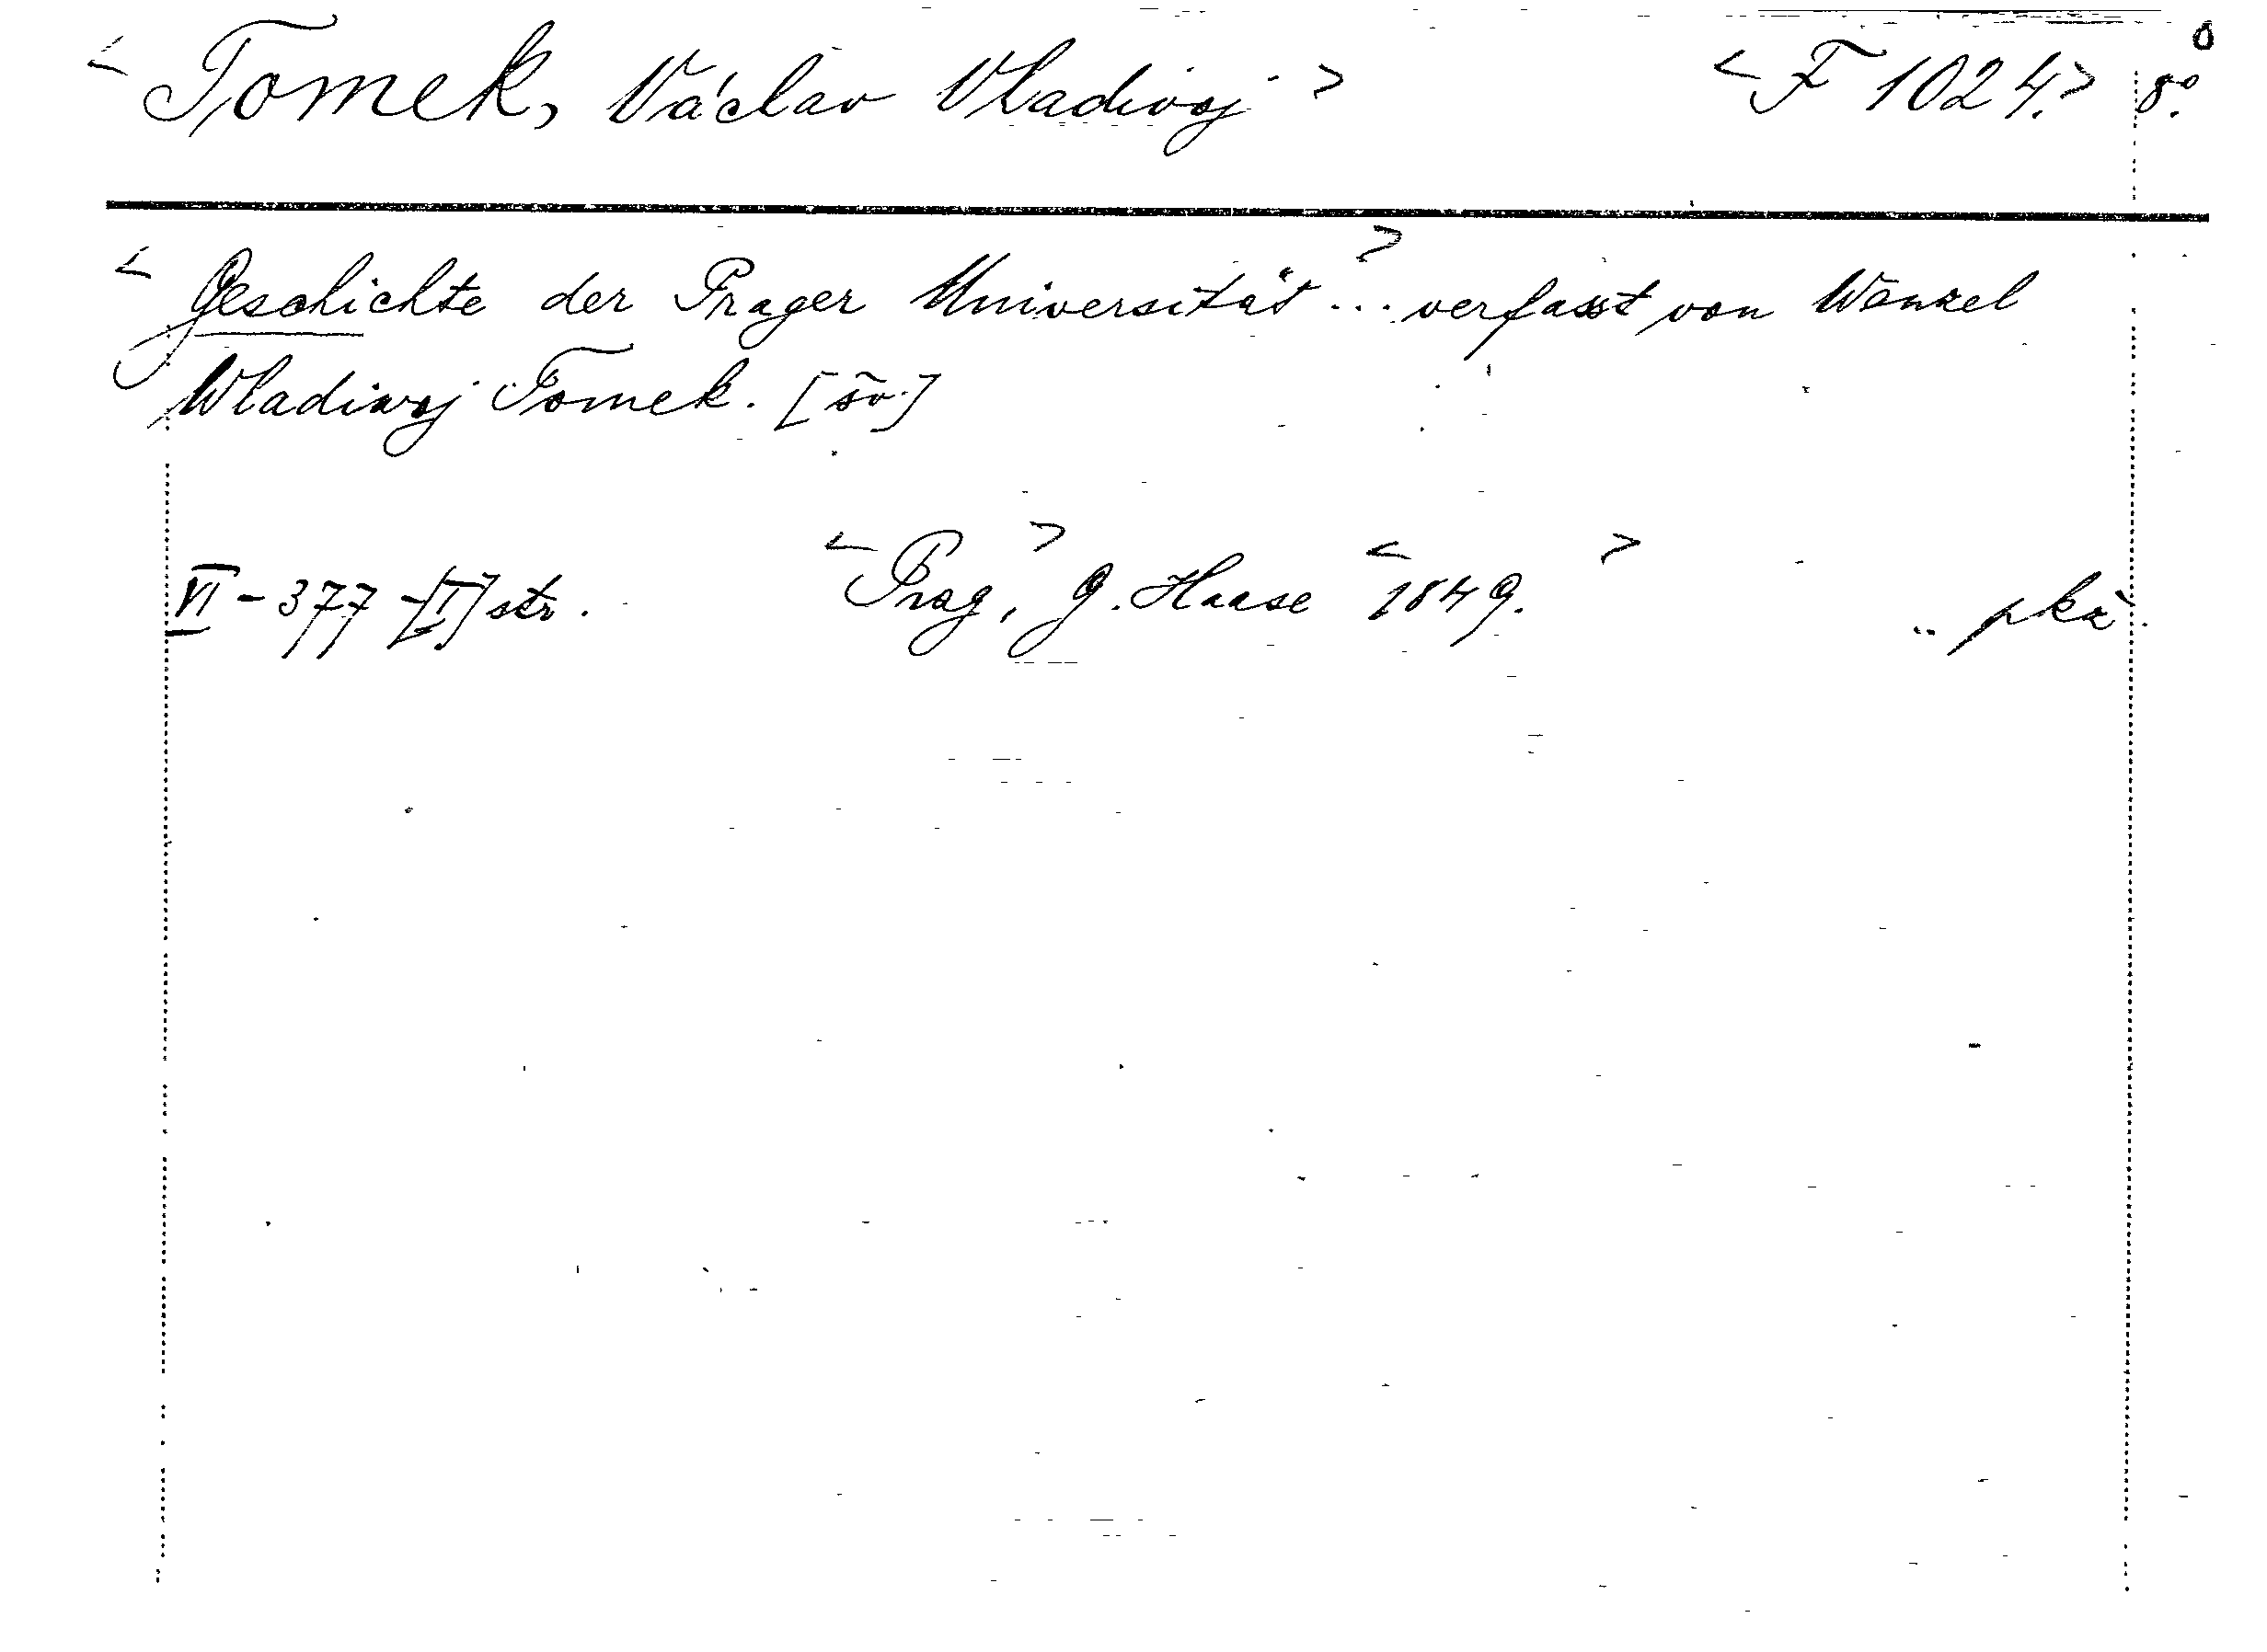 < Tomek, Václav Vladivoj > < F 1024. > 8°.
< Geschichte der Prager Universität > ... verfasst von Wenzel
Wladiwoj Tomek. [šv.]
VI - 377 - [I] str. < Prag, > G. Haase < 1849. > pkž.